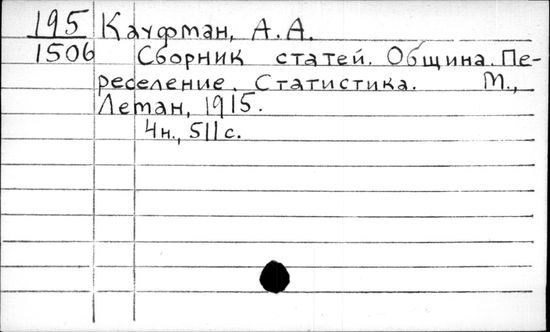 195 Кауфман, А.А.
1506 Сборник статей. Община. Пе-
реселение. Статистика. М.,
Леман, 1915.
4н., 511с.